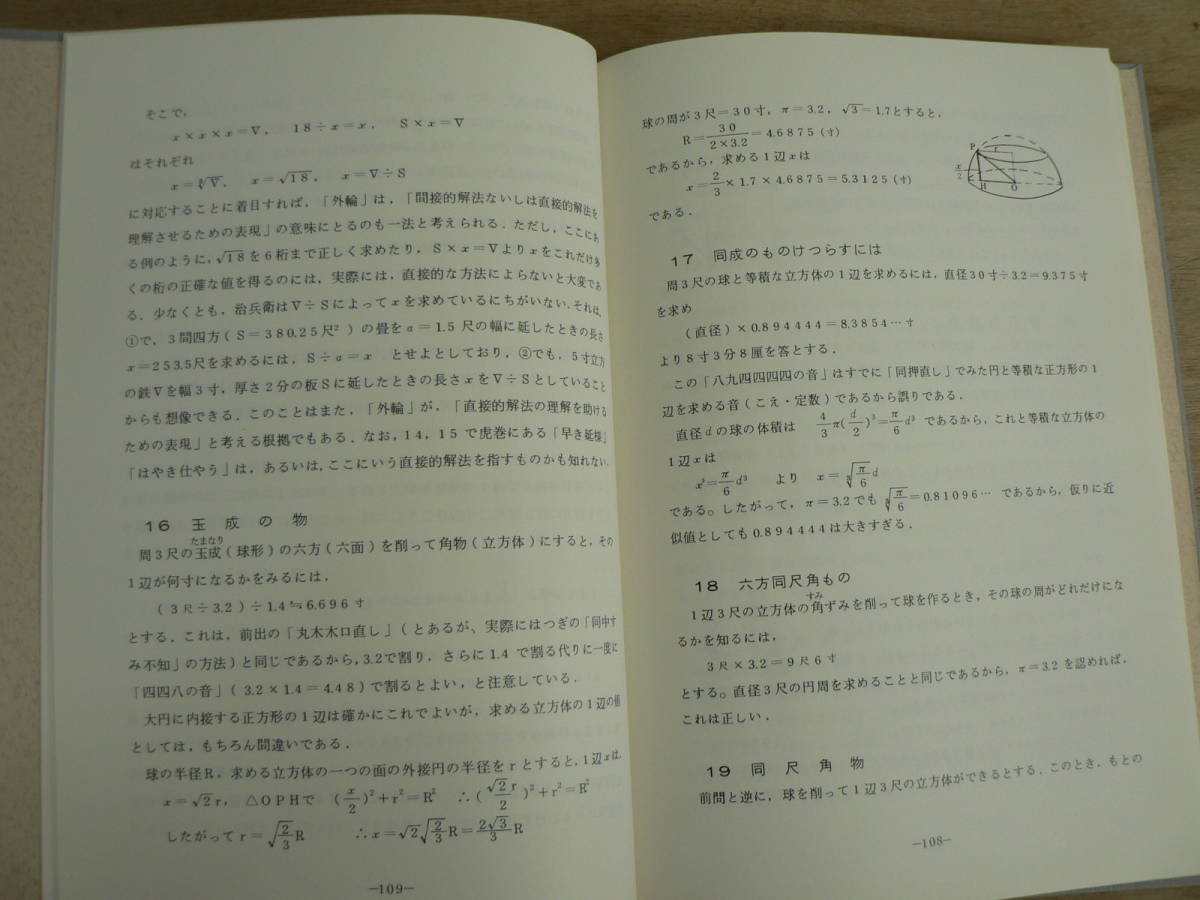 そこで，
x×x×x＝∇，　18÷x＝x．　S×x＝∇
はそれぞれ
x＝∛∇，　x＝√18，　x＝∇÷S
に対応することに着目すれば，「外輪」は，「間接的解法ないしは直接的解法を
理解させるための表現」の意味にとるのも一法と考えられる．ただし，ここにあ
る例のように，√18を6桁まで正しく求めたり，S×x＝∇よりxをこれだけ多
くの桁の正確な値を得るのには，実際には，直接的な方法によらないと大変であ
る．少なくとも，治兵衛は∇÷Sによってxを求めているにちがいない．それは，
①で，3間四方（S＝380.25尺²）の畳をα＝1.5 尺の幅に延したときの長さ
x＝253.5尺を求めるには，S÷α＝x　とせよとしており，②でも，5寸立方
の鉄∇を幅3寸，厚さ2分の板Sに延したときの長さxを∇÷Sとしていること
からも想像できる．このことはまた，「外輪」が，「直接的解法の理解を助ける
ための表現」と考える根拠でもある．なお，14，15で虎巻にある「早き延様」
「はやき仕やう」は，あるいは，ここにいう直接的解法を指すものかも知れない．
16　玉成の物
たまなり
周3尺の玉成（球形）の六方（六面）を削って角物（立方体）にすると，その
1辺が何寸になるかをみるには，
（3尺÷3.2）÷1.4≒6.696寸
とする．これは，前出の「丸木木口直し」（とあるが、実際にはつぎの「同中す
み不知」の方法）と同じであるから，3.2で割り，さらに1.4で割る代りに一度に
「四四八の音」（3.2×1.4＝4.48）で割るとよい，と注意している．
大円に内接する正方形の1辺は確かにこれでよいが，求める立方体の1辺の値
としては，もちろん間違いである．
球の半径R，求める立方体の一つの面の外接円の半径をrとすると，1辺xは，
x＝√2 r，　△OPHで　(x/2)²＋r²＝R²　∴(√2 r/2)²＋r²＝R²
したがって r＝√(2/3) R　　∴x＝√2 √(2/3) R＝(2√3/3) R
―109―
球の周が3尺＝30寸，π＝3.2，√3＝1.7とすると，
R＝30/(2×3.2)＝4.6875（寸）
であるから，求める1辺xは
x＝2/3×1.7×4.6875＝5.3125（寸）
である．
P
r
x/2
H
O
17　同成のものけつらすには
周3尺の球と等積な立方体の1辺を求めるには，直径30寸÷3.2＝9.375寸
を求め
（直径）×0.894444＝8.3854…寸
より8寸3分8厘を答とする．
この「八九四四四四の音」はすでに「同押直し」でみた円と等積な正方形の1
辺を求める音（こえ・定数）であるから誤りである．
直径dの球の体積は　4/3 π(d/2)³＝π/6 d³　であるから，これと等積な立方体の
1辺xは
x³＝π/6 d³　より　x＝∛(π/6) d
である。したがって，π＝3.2でも ∛(π/6)＝0.81096…　であるから，仮りに近
似値としても0.894444は大きすぎる．
18　六方同尺角もの
すみ
1辺3尺の立方体の角ずみを削って球を作るとき，その球の周がどれだけにな
るかを知るには，
3尺×3.2＝9尺6寸
とする。直径3尺の円周を求めることと同じであるから，π＝3.2 を認めれば，
これは正しい．
19　同尺角物
前問と逆に，球を削って1辺3尺の立方体ができるとする．このとき，もとの
―108―